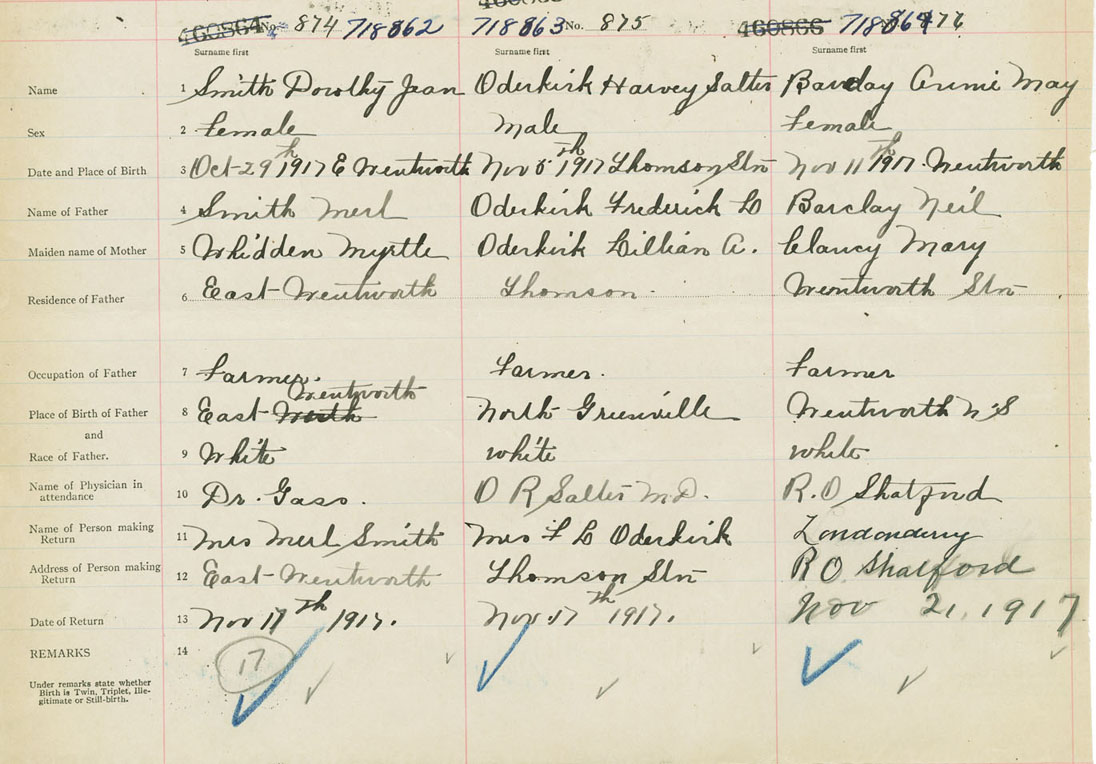 460864 No. 874 718862 718863 No. 875 460866 718864 876
Surname first Surname first Surname first
Name 1 Smith Dorothy Jean Oderkirk Harvey Salter Barclay Annie May
Sex 2 Female Male Female
Date and Place of Birth 3 Oct 29th 1917 E Wentworth Nov 5th 1917 Thomson Stn Nov 11th 1917. Wentworth
Name of Father 4 Smith Merl Oderkirk Frederick L Barclay Neil
Maiden name of Mother 5 Whidden Myrtle Oderkirk Lillian A. Clancy Mary
Residence of Father 6 East Wentworth Thomson Wentworth Stn
Occupation of Father 7 Farmer. Farmer. Farmer
Wentworth
Place of Birth of Father 8 East North Greenville Wentworth N.S
and
Race of Father. 9 White white white
Name of Physician in attendance 10 Dr. Gass. D R Salter M.D. R.O Shatford
Name of Person making Return 11 Mrs Merl Smith Mrs F L Oderkirk Londonderry
Address of Person making Return 12 East Wentworth Thomson Stn R O Shatford
Date of Return 13 Nov 17th 1917. Nov. 17th 1917. Nov 21, 1917
REMARKS 14
17
Under remarks state whether
Birth is Twin, Triplet, Ille-
gitimate or Still-birth.